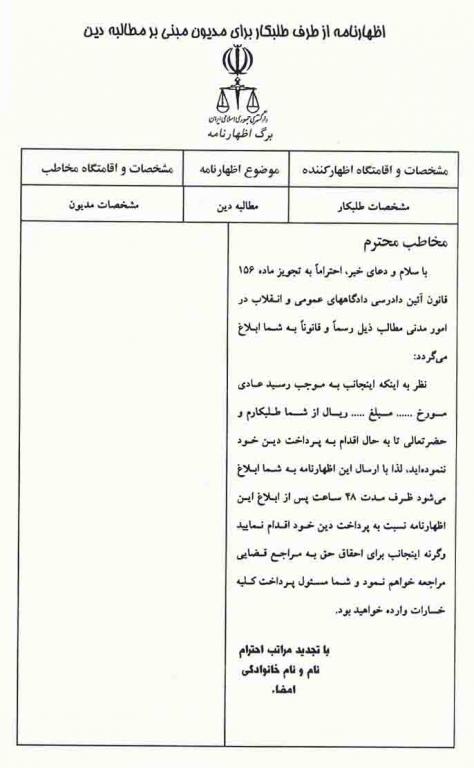 اظهارنامه از طرف طلبکار برای مدیون مبنی بر مطالبه دین
دادگستری جمهوری اسلامی ایران
برگ اظهارنامه
مشخصات و اقامتگاه اظهارکننده
موضوع اظهارنامه
مشخصات و اقامتگاه مخاطب
مشخصات طلبکار
مطالبه دین
مشخصات مدیون
مخاطب محترم
با سلام و دعای خیر، احتراماً به تجویز ماده ۱۵۶
قانون آئین دادرسی دادگاههای عمومی و انقلاب در
امور مدنی مطالب ذیل رسماً و قانوناً به شما ابلاغ
می‌گردد:
نظر به اینکه اینجانب به موجب رسید عادی
مورخ ...... مبلغ ..... ریال از شما طلبکارم و
حضرتعالی تا به حال اقدام به پرداخت دین خود
ننموده‌اید، لذا با ارسال این اظهارنامه به شما ابلاغ
می‌شود ظرف مدت ۴۸ ساعت پس از ابلاغ این
اظهارنامه نسبت به پرداخت دین خود اقدام نمایید
وگرنه اینجانب برای احقاق حق به مراجع قضایی
مراجعه خواهم نمود و شما مسئول پرداخت کلیه
خسارات وارده خواهید بود.
با تجدید مراتب احترام
نام و نام خانوادگی
امضاء.